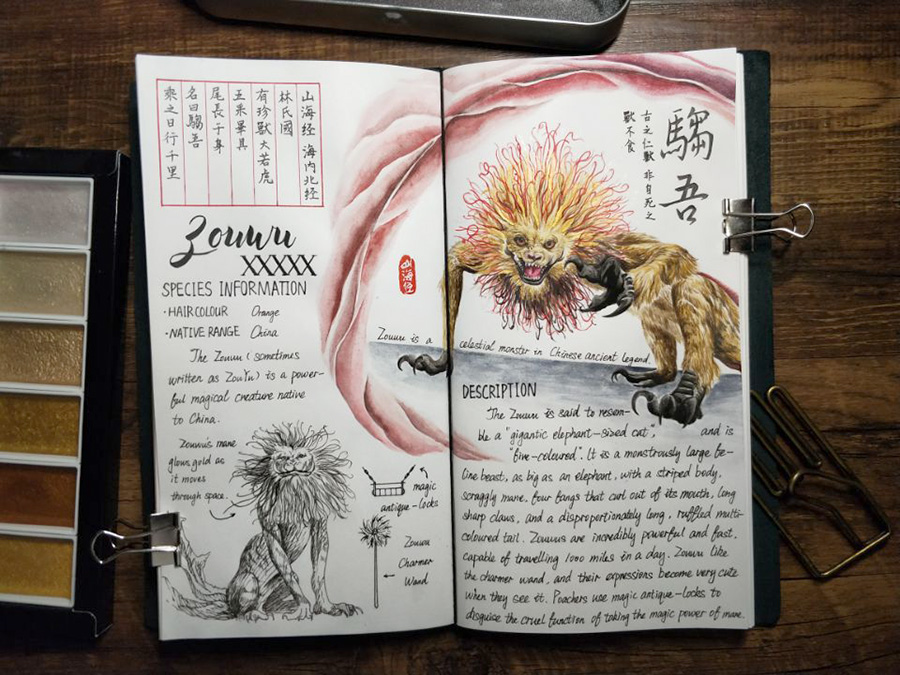 山海经 海内北经
林氏國
有珍獸大若虎
五采畢具
尾長于身
名曰騶吾
乘之日行千里
Zouwu
XXXXX
SPECIES INFORMATION
·HAIR COLOUR Orange
·NATIVE RANGE China
The Zouwu (sometimes
written as ZouYu) is a power-
ful magical creature native
to China.
Zouwu's mane
glows gold as
it moves
through space.
magic
antique-locks
Zouwu
Charmer
Wand
山海经
騶吾
古之仁獸 非自死之
獸不食
Zouwu is a celestial monster in Chinese ancient legend.
DESCRIPTION
The Zouwu is said to resem-
ble a "gigantic elephant-sized cat", and is
"five-coloured". It is a monstrously large fe-
line beast, as big as an elephant, with a striped body,
scraggly mane, four fangs that curl out of its mouth, long
sharp claws, and a disproportionately long, ruffled multi-
coloured tail. Zouwus are incredibly powerful and fast,
capable of travelling 1000 miles in a day. Zouwu like
the charmer wand, and their expressions become very cute
when they see it. Poachers use magic antique-locks to
disguise the cruel function of taking the magic power of mane.